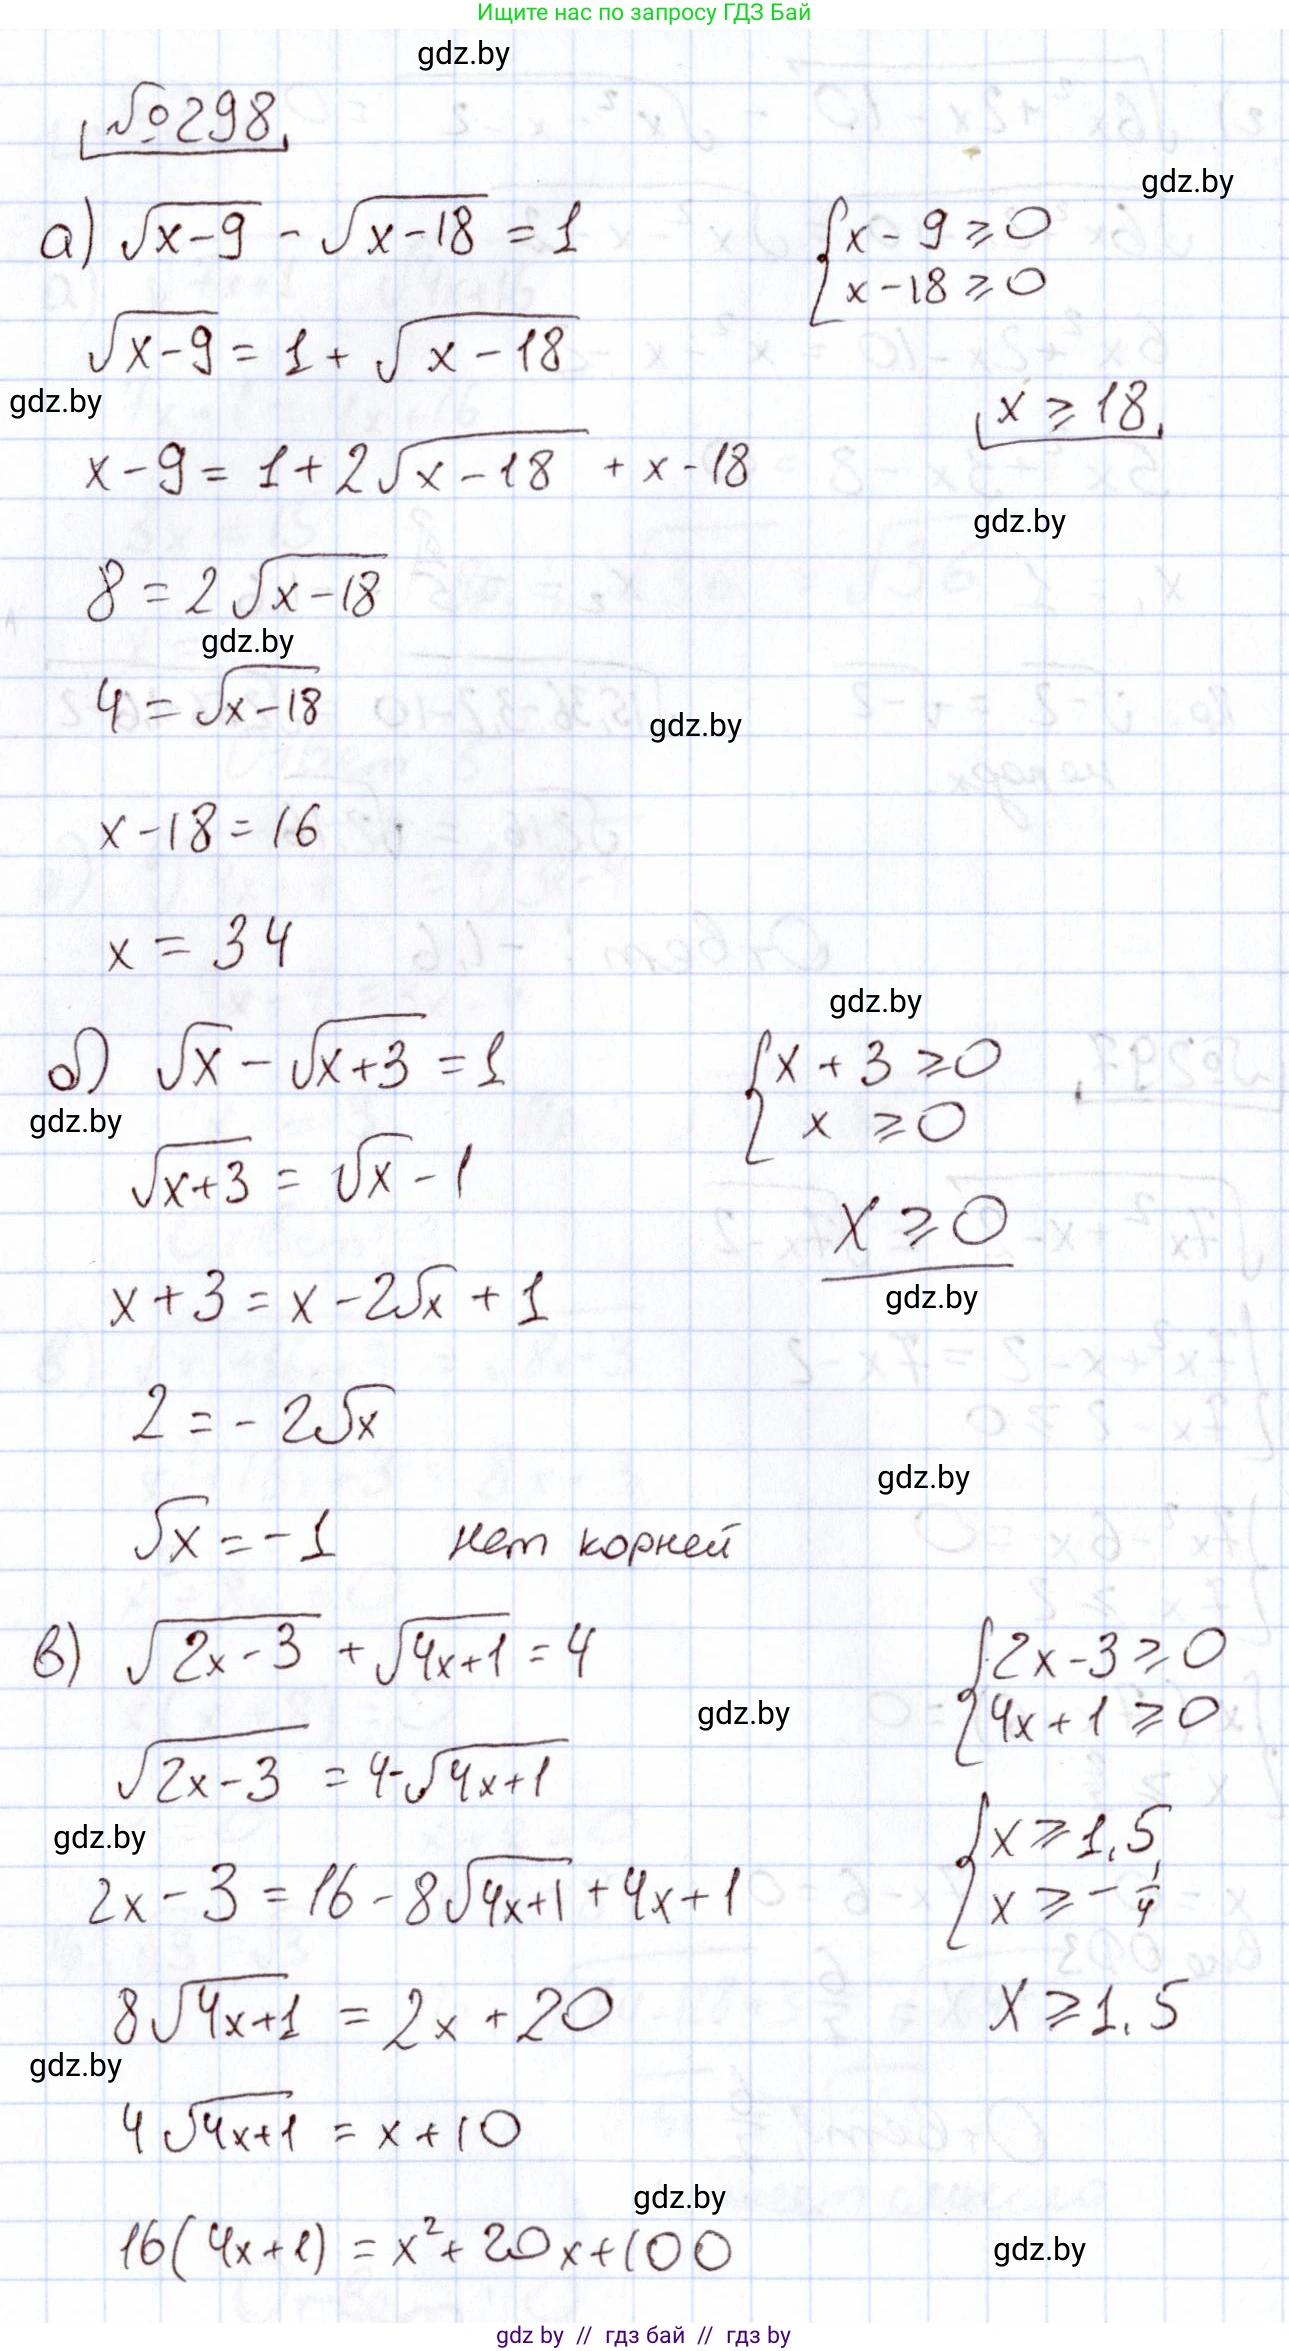 Ищите нас по запросу ГДЗ Бай
gdz.by
№298
gdz.by
а) √(x-9) - √(x-18) = 1
{x - 9 ≥ 0
x - 18 ≥ 0
√(x-9) = 1 + √(x-18)
gdz.by
x ≥ 18
x - 9 = 1 + 2√(x-18) + x - 18
gdz.by
8 = 2√(x-18)
gdz.by
4 = √(x-18)
gdz.by
x - 18 = 16
x = 34
gdz.by
б) √x - √(x+3) = 1
{x + 3 ≥ 0
x ≥ 0
gdz.by
√(x+3) = √x - 1
x ≥ 0
x + 3 = x - 2√x + 1
gdz.by
2 = - 2√x
gdz.by
√x = -1 нет корней
в) √(2x-3) + √(4x+1) = 4
{2x - 3 ≥ 0
4x + 1 ≥ 0
gdz.by
√(2x-3) = 4 - √(4x+1)
{x ≥ 1,5
x ≥ - 1/4
gdz.by
2x - 3 = 16 - 8√(4x+1) + 4x + 1
8√(4x+1) = 2x + 20
x ≥ 1,5
gdz.by
4√(4x+1) = x + 10
gdz.by
16(4x+1) = x² + 20x + 100
gdz.by
gdz by // гдз бай // гдз by